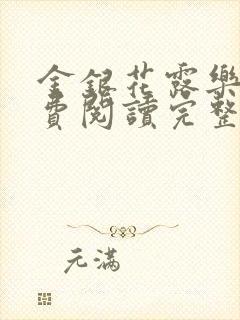 金銀花露樂
費閱讀完整
元滿